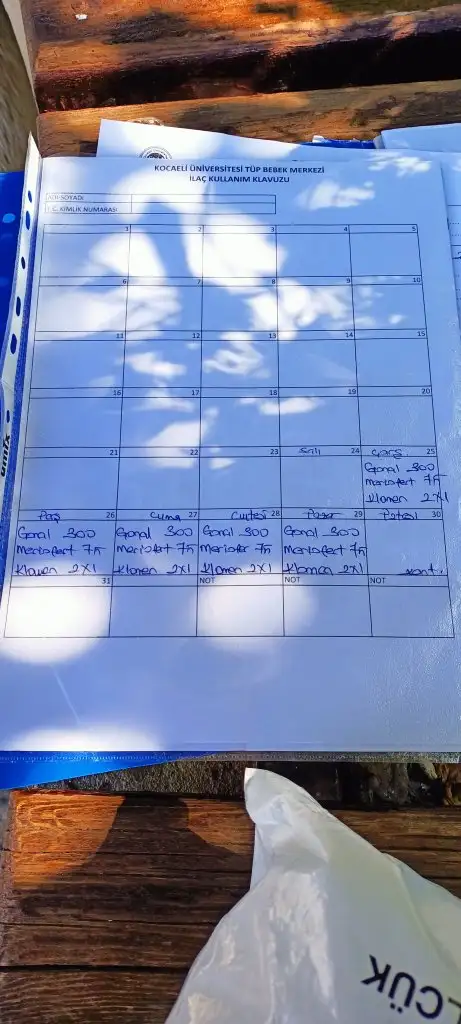 KOCAELİ ÜNİVERSİTESİ TÜP BEBEK MERKEZİ
İLAÇ KULLANIM KLAVUZU
ADI-SOYADI
T.C. KİMLİK NUMARASI
1 2 3 4 5
6 7 8 9 10
11 12 13 14 15
16 17 18 19 20
21 22 23 Salı 24 Çarş 25
Gonal 300
Meriofert 75
Klomen 2x1
Perş 26 Cuma 27 Cumtesi 28 Pazar 29 Patesi 30
Gonal 300 Gonal 300 Gonal 300 Gonal 300
Meriofert 75 Meriofert 75 Meriofer 75 Meriofert 75
Klomen 2x1 Klomen 2x1 Klomen 2x1 Klomen 2x1 kont.
31 NOT NOT NOT
emix
LCÜK